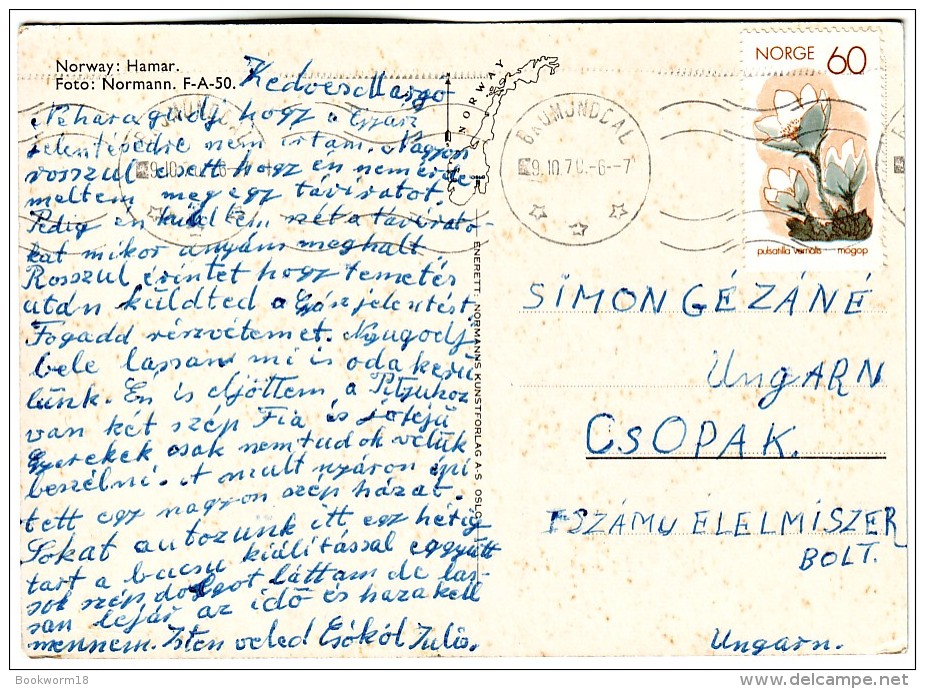 Norway: Hamar.
Foto: Normann. F-A-50.
Kedves Margo
Ne haragudj hogy a gyász
jelentésedre nem írtam. Nagyon
rosszul esett hogy én nem érde
meltem meg egy táviratot.
Pedig én küldtem nét a távirato
kat mikor anyám meghalt
Rosszul érintet hogy temetés
után küldted a Gyászjelentést.
Fogadd részvétemet. Nyugodj
bele lassan mi is oda kerü
lünk. Én is eljöttem a Pityuhoz
van két szép Fia és
Gyerekek csak nem tudok velük
beszélni. A mult nyáron épi
tett egy nagyon szép házat.
Sokat autozunk itt egy hétig
tart a bucsu kiálitással együtt
sok szép dolgot láttam de las-
san lejár az idö és haza kell
mennem. Isten veled Csókól Julis.
NORWAY
ENERETT: NORMANNS KUNSTFORLAG A-S OSLO
BRUMUNDDAL
9.10.70.-6--7
NORGE 60
pulsatilla vernalis mogop
SIMON GÉZÁNÉ
UNGARN
CSOPAK.
1 SZÁMU ÉLELMISZER
BOLT.
Ungarn.
Bookworm18
delcampe.net